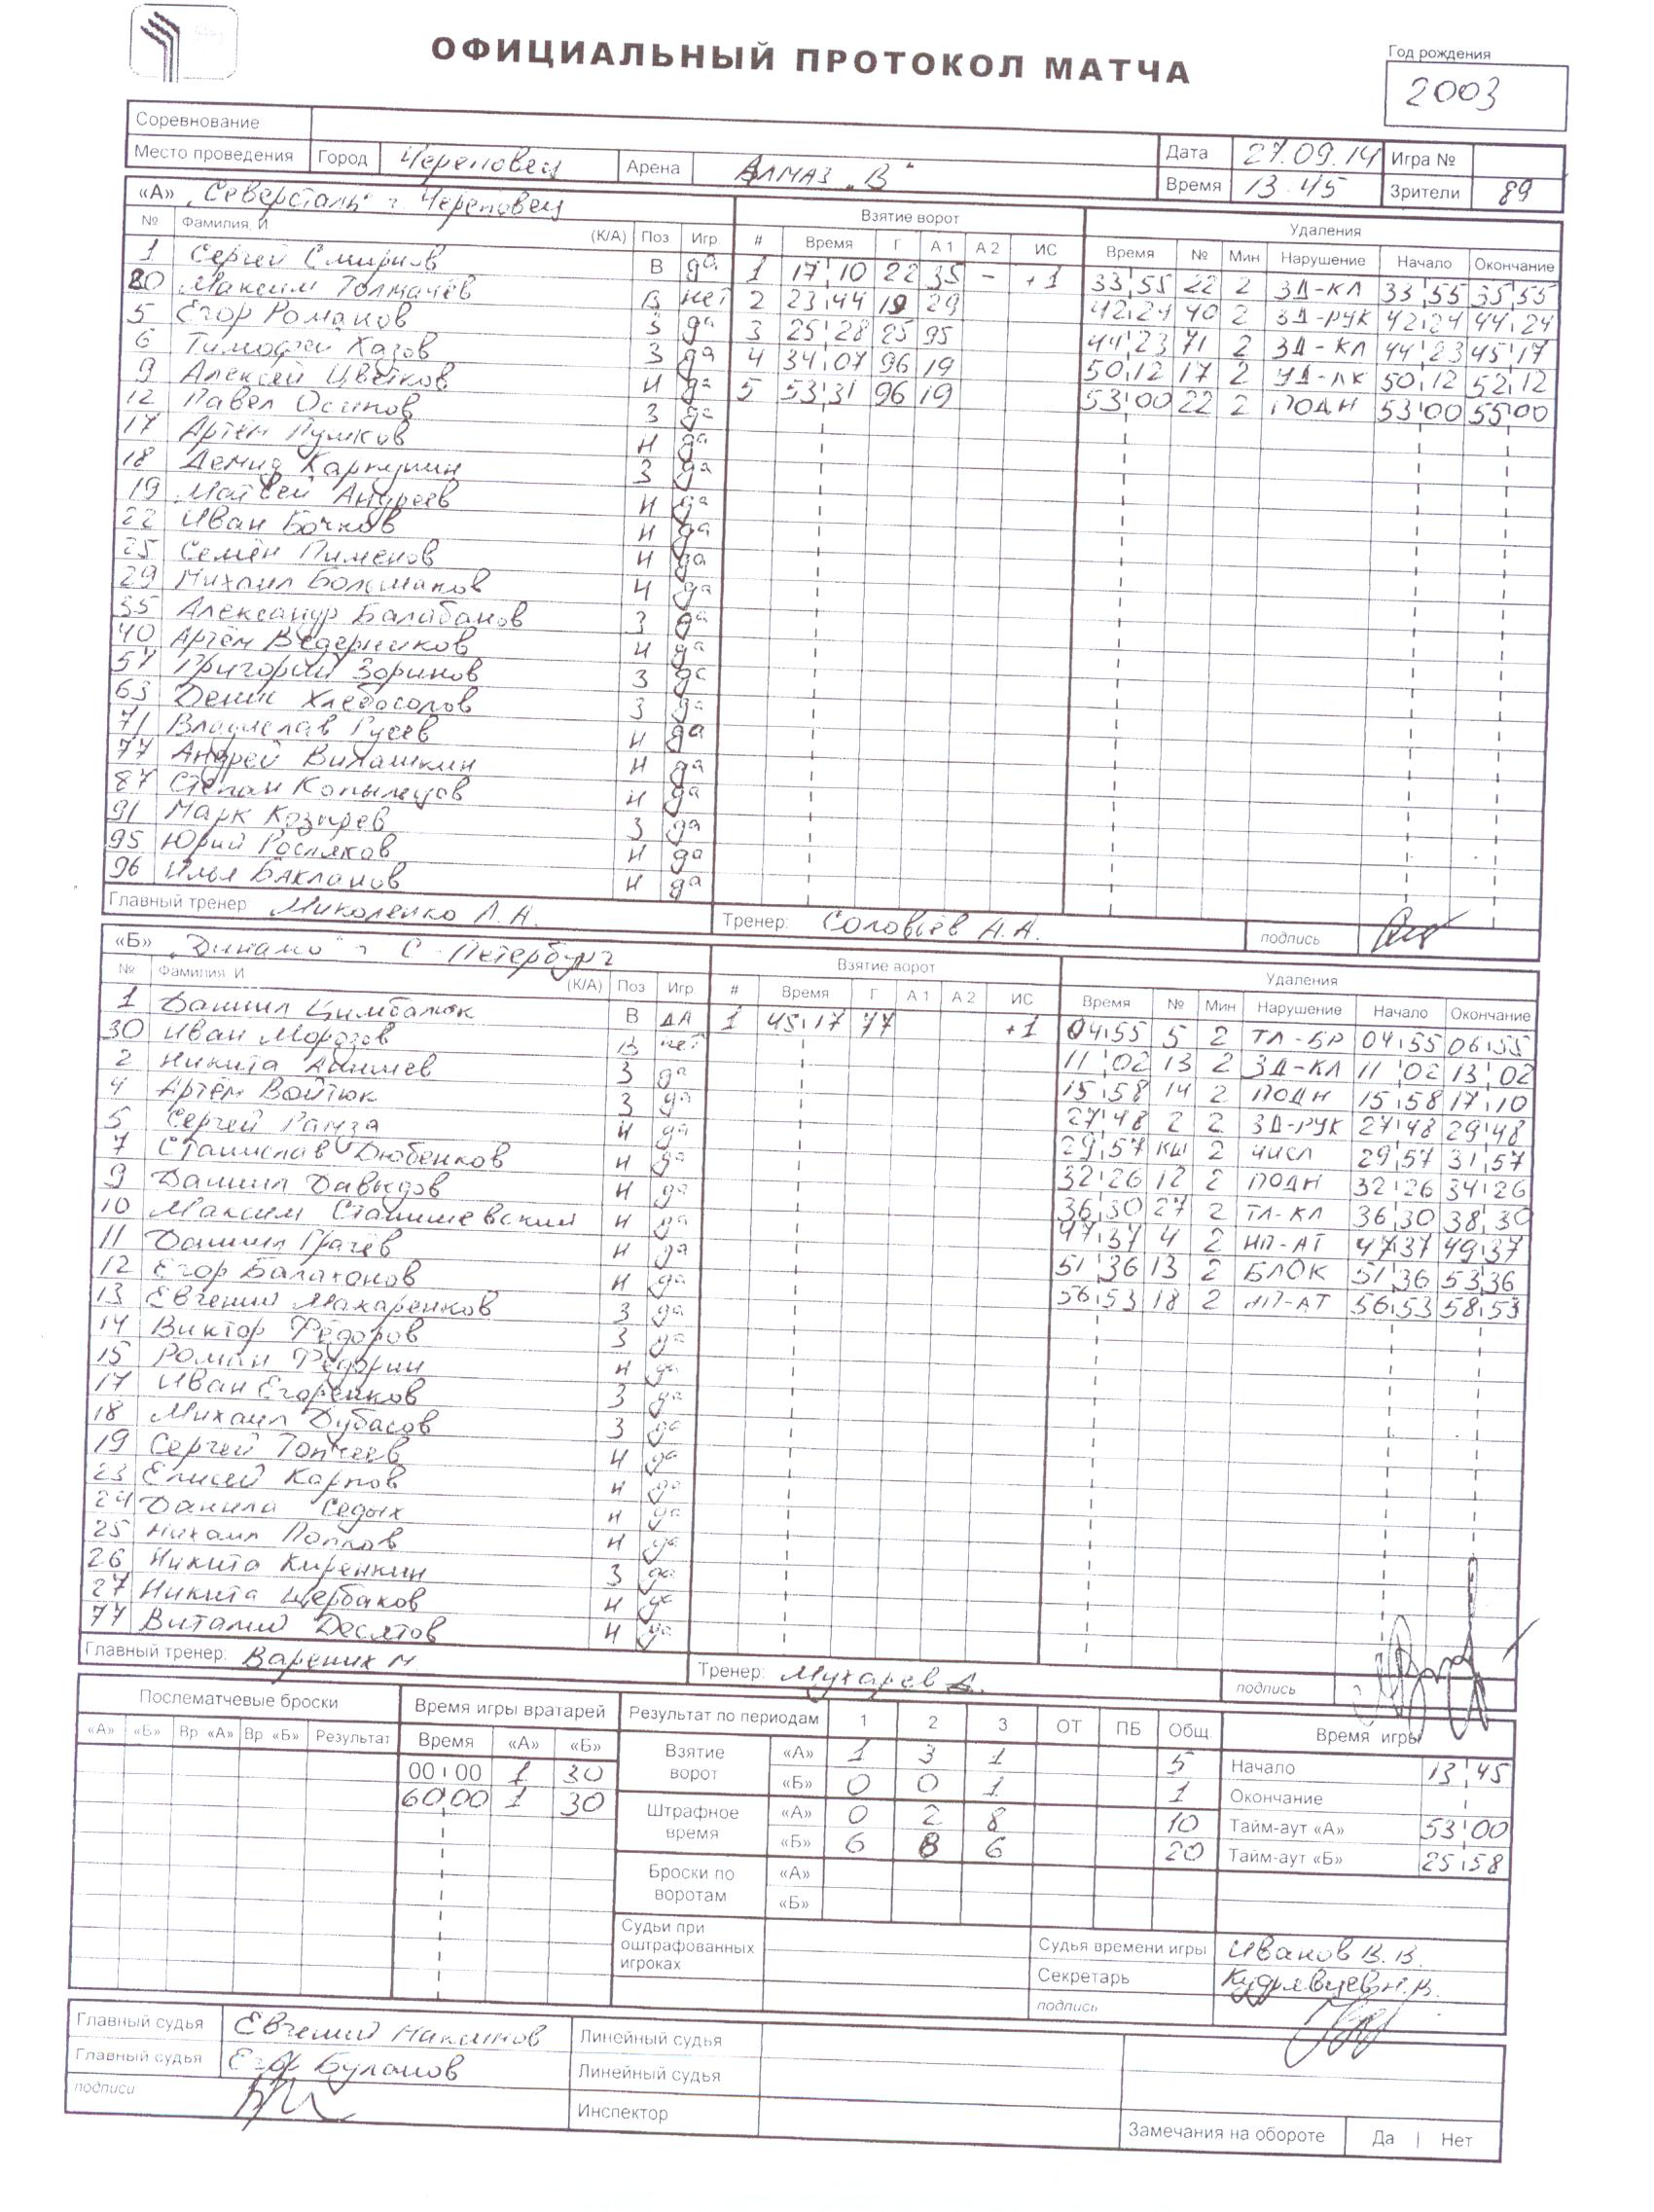 ОФИЦИАЛЬНЫЙ ПРОТОКОЛ МАТЧА
Год рождения
2003
Соревнование
Место проведения Город Череповец Арена Алмаз „В" Дата 27.09.14 Игра №
Время 13.45 Зрители 89
«А» „Северсталь" г. Череповец Взятие ворот Удаления
№ Фамилия, И (К/А) Поз Игр # Время Г А 1 А 2 ИС Время № Мин Нарушение Начало Окончание
1 Сергей Смирнов В да 1 17 10 22 35 - +1 33 55 22 2 ЗД-КЛ 33 55 35 55
20 Максим Толмачёв В нет 2 23 44 19 29 42 24 40 2 ЗД-РУК 42 24 44 24
5 Егор Романов З да 3 25 28 25 95 44 23 71 2 ЗД-КЛ 44 23 45 17
6 Тимофей Хазов З да 4 34 07 96 19 50 12 17 2 УД-ЛК 50 12 52 12
9 Алексей Цветков Н да 5 53 31 96 19 53 00 22 2 ПОДН 53 00 55 00
12 Павел Осипов З да
17 Артём Пушков Н да
18 Демид Карпушин З да
19 Матвей Андреев Н да
22 Иван Бочков Н да
25 Семён Пименов Н да
29 Михаил Большаков Н да
35 Александр Балабанов З да
40 Артём Ведерников Н да
57 Григорий Зоринов З да
63 Денис Хлебосолов З да
71 Владислав Гусев Н да
77 Андрей Виташкин Н да
87 Степан Копылецов Н да
91 Марк Козырев З да
95 Юрий Росляков Н да
96 Илья Бакланов Н да
Главный тренер Миколенко Л.А. Тренер: Соловьёв А.А. подпись
«Б» „Динамо" г. С-Петербург Взятие ворот Удаления
№ Фамилия И (К/А) Поз Игр # Время Г А 1 А 2 ИС Время № Мин Нарушение Начало Окончание
1 Даниил Цимбалюк В ДА 1 45 17 77 +1 04 55 5 2 ТЛ-БР 04 55 06 55
30 Иван Морозов В нет 11 02 13 2 ЗД-КЛ 11 02 13 02
2 Никита З да 15 58 14 2 ПОДН 15 58 17 10
4 Артём Войтюк З да 27 48 2 2 ЗД-РУК 27 48 29 48
5 Сергей Рамза Н да 29 57 КШ 2 ЧИСЛ 29 57 31 57
7 Станислав Дюбенков Н да 32 26 12 2 ПОДН 32 26 34 26
9 Даниил Давыдов Н да 36 30 27 2 ТЛ-КЛ 36 30 38 30
10 Максим Станишевский Н да 47 37 4 2 НП-АТ 47 37 49 37
11 Даниил Грачёв Н да 51 36 13 2 БЛОК 51 36 53 36
12 Егор Балахонов Н да 56 53 18 2 НП-АТ 56 53 58 53
13 Евгений Макаренков З да
14 Виктор Фёдоров З да
15 Роман Федорин Н да
17 Иван Егоренков З да
18 Михаил Дубасов З да
19 Сергей Топчеев Н да
23 Елисей Карпов Н да
24 Данила Седых Н да
25 Михаил Попков Н да
26 Никита Киренкин З да
27 Никита Щербаков Н да
77 Виталий Десятов Н да
Главный тренер: Вареник Н. Тренер: Мухарев А. подпись
Послематчевые броски Время игры вратарей Результат по периодам 1 2 3 ОТ ПБ Общ. Время игры
«А» «Б» Вр «А» Вр «Б» Результат Время «А» «Б»
Взятие ворот «А» 1 3 1 5 Начало 13 45
00 00 1 30 «Б» 0 0 1 1 Окончание
60 00 1 30 Штрафное время «А» 0 2 8 10 Тайм-аут «А» 53 00
«Б» 6 8 6 20 Тайм-аут «Б» 25 58
Броски по воротам «А»
«Б»
Судьи при оштрафованных игроках Судья времени игры Иванов В.В.
Секретарь Кудрявцев Н.В.
подпись
Главный судья Евгений Линейный судья
Главный судья Егор Буланов Линейный судья
подписи Инспектор
Замечания на обороте Да | Нет